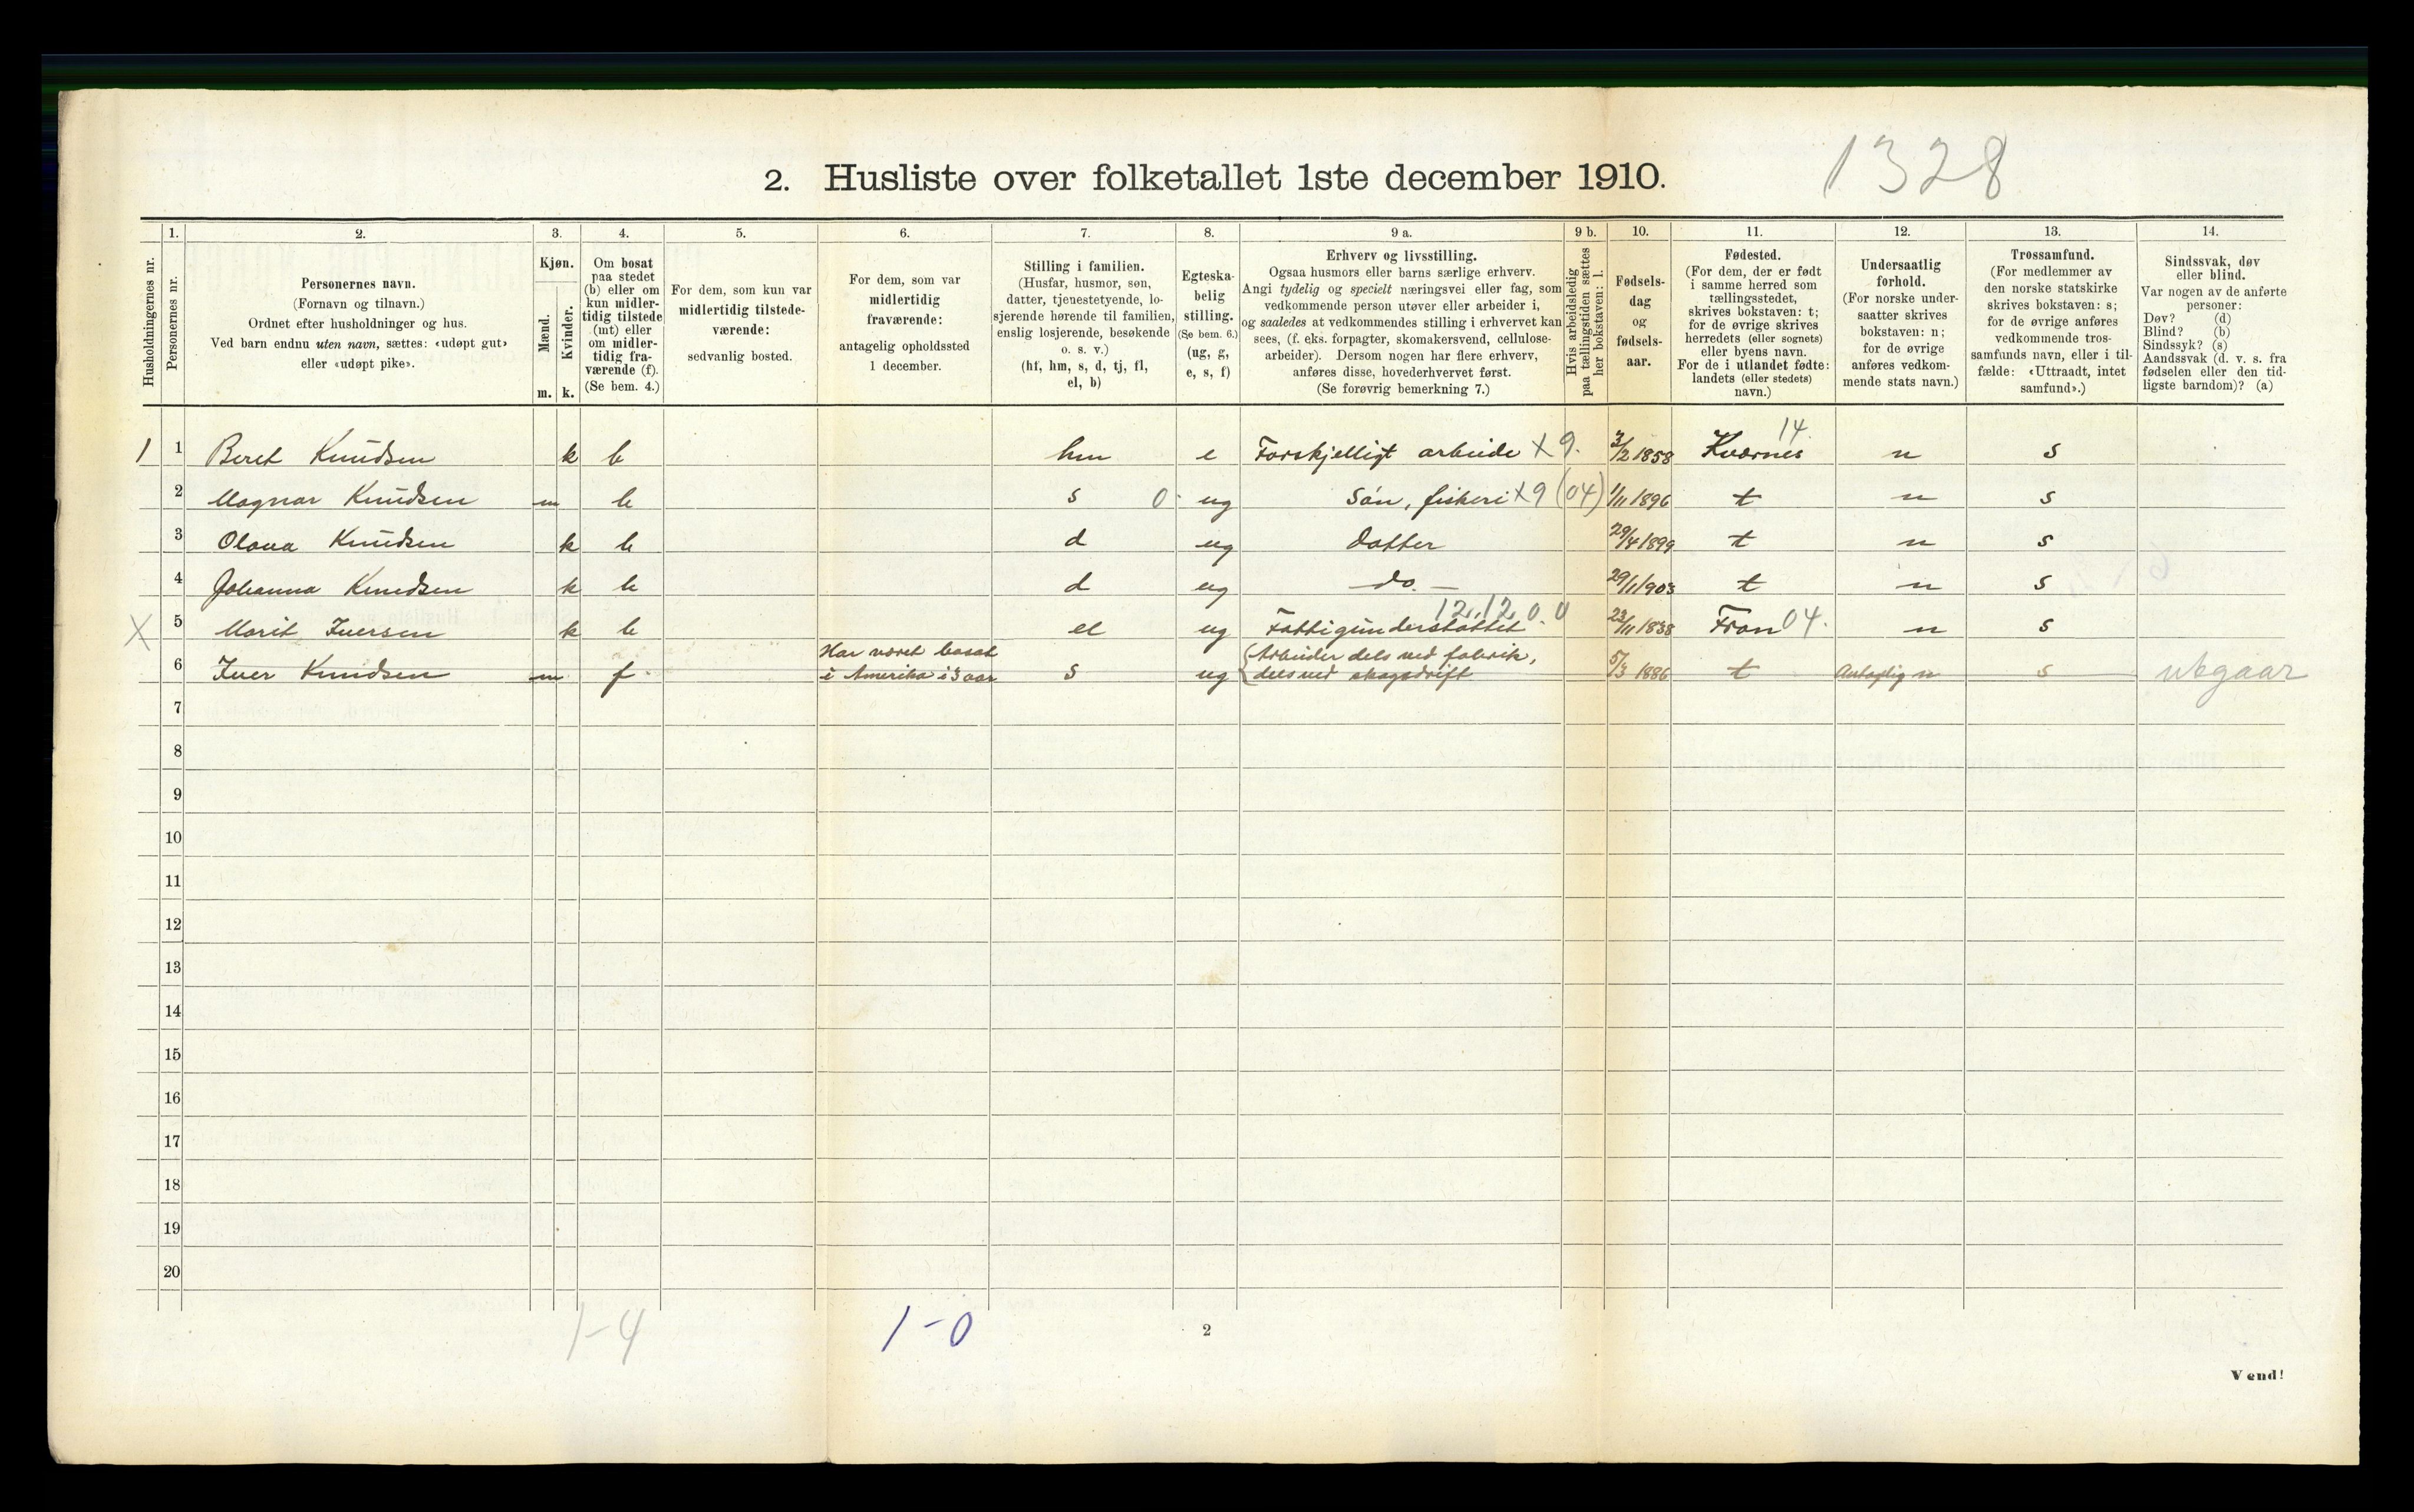 1328
2. Husliste over folketallet 1ste december 1910.
Husholdningernes nr.
1.
Personernes nr.
2.
Personernes navn.
(Fornavn og tilnavn.)
Ordnet efter husholdninger og hus.
Ved barn endnu uten navn, sættes: «udøpt gut»
eller «udøpt pike».
3.
Kjøn.
Mænd.
Kvinder.
m. k.
4.
Om bosat
paa stedet
(b) eller om
kun midler-
tidig tilstede
(mt) eller
om midler-
tidig fra-
værende (f).
(Se bem. 4.)
5.
For dem, som kun var
midlertidig tilstede-
værende:
sedvanlig bosted.
6.
For dem, som var
midlertidig
fraværende:
antagelig opholdssted
1 december.
7.
Stilling i familien.
(Husfar, husmor, søn,
datter, tjenestetyende, lo-
sjerende hørende til familien,
enslig losjerende, besøkende
o. s. v.)
(hf, hm, s, d, tj, fl,
el, b)
8.
Egteska-
belig
stilling.
(Se bem. 6.)
(ug, g,
e, s, f)
9 a.
Erhverv og livsstilling.
Ogsaa husmors eller barns særlige erhverv.
Angi tydelig og specielt næringsvei eller fag, som
vedkommende person utøver eller arbeider i,
og saaledes at vedkommendes stilling i erhvervet kan
sees, (f. eks. forpagter, skomakersvend, cellulose-
arbeider). Dersom nogen har flere erhverv,
anføres disse, hovederhvervet først.
(Se forøvrig bemerkning 7.)
9 b.
Hvis arbeidsledig
paa tællingstiden sættes
her bokstaven: l.
10.
Fødsels-
dag
og
fødsels-
aar.
11.
Fødested.
(For dem, der er født
i samme herred som
tællingsstedet,
skrives bokstaven: t;
for de øvrige skrives
herredets (eller sognets)
eller byens navn.
For de i utlandet fødte:
landets (eller stedets)
navn.)
12.
Undersaatlig
forhold.
(For norske under-
saatter skrives
bokstaven: n;
for de øvrige
anføres vedkom-
mende stats navn.)
13.
Trossamfund.
(For medlemmer av
den norske statskirke
skrives bokstaven: s;
for de øvrige anføres
vedkommende tros-
samfunds navn, eller i til-
fælde: «Uttraadt, intet
samfund».)
14.
Sindssvak, døv
eller blind.
Var nogen av de anførte
personer:
Døv? (d)
Blind? (b)
Sindssyk? (s)
Aandssvak (d. v. s. fra
fødselen eller den tid-
ligste barndom)? (a)
14.
1 1 Beret Knudsen k b hm e Forskjelligt arbeide X 9. 3/2 1858 Kværnes n s
2 Magnar Knudsen m b s 0 ug Søn, fiskeri X 9 (04) 1/11 1896 t n s
3 Olava Knudsen k b d ug Datter 29/4 1899 t n s
4 Johanna Knudsen k b d ug — do. — 29/1 1903 t n s
12.12.0.0
X 5 Marit Iversen k b el ug Fattigunderstøttet 23/11 1838 Fron 04. n s
Har været bosat {Arbeider dels ved fabrik,
6 Iver Knudsen m f i Amerika i 3 aar s ug dels ved skogsdrift 5/3 1886 t Antaglig n s utgaar
7
8
9
10
11
12
13
14
15
16
17
18
19
20
1-4 1-0
2
Vend!